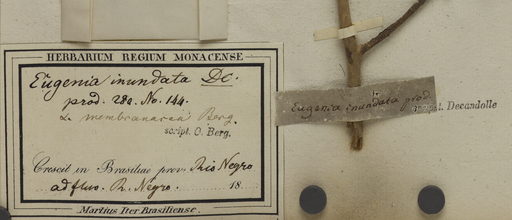 HERBARIUM REGIUM MONACENSE
Eugenia inundata DC.
prod. 280. No. 144.
α membranacea Berg.
script. O. Berg.
Crescit in Brasiliae prov. Rio Negro
ad fluv. R. Negro. 18
Martius Iter Brasiliense.
Eugenia inundata prod.
script. Decandolle